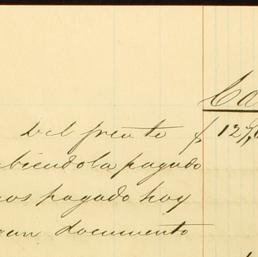 Ca
Del frente f. 12
biendola pagado
os pagado hoy
gun documento